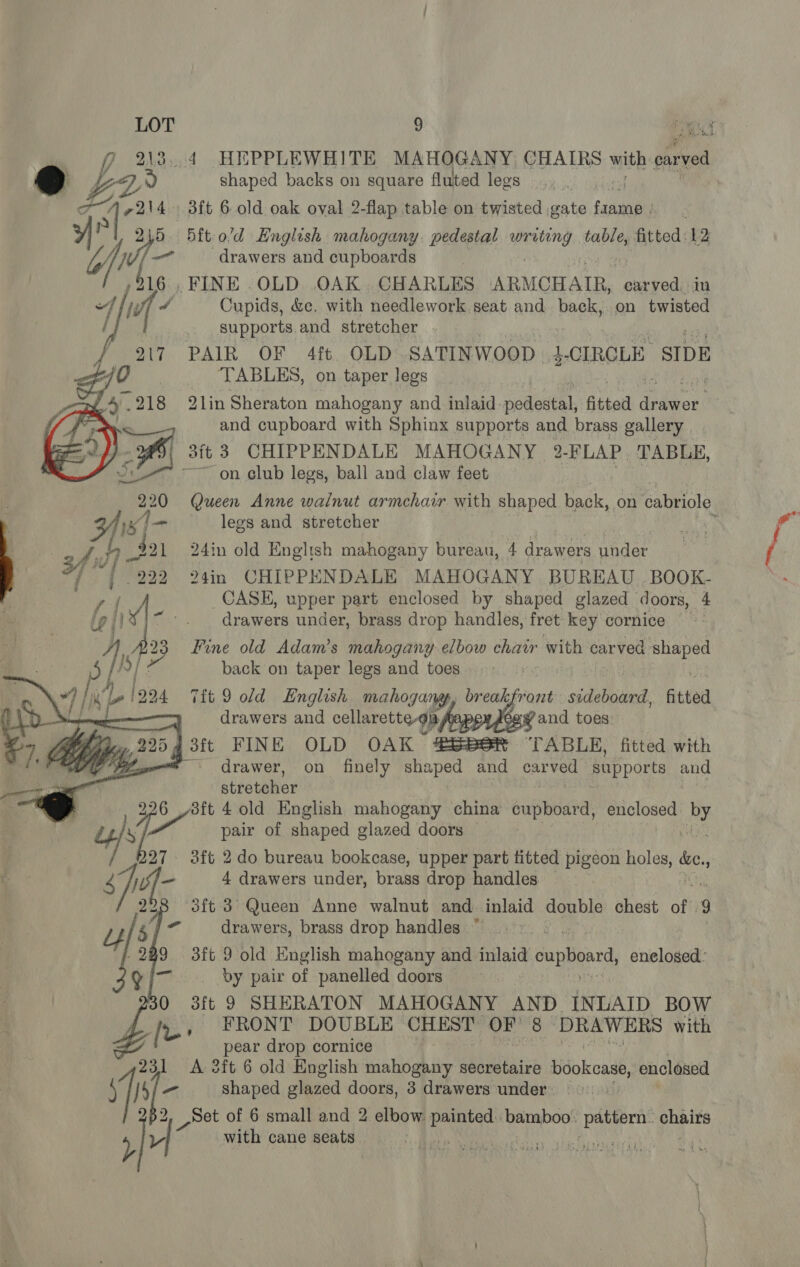 LOT 9
213 4 HEPPLEWHITE MAHOGANY CHAIRS with carved
shaped backs on square fluted legs
214 3ft 6 old oak oval 2-flap table on twisted gate frame
215 5ft old English mahogany pedestal writing table, fitted 12
drawers and cupboards
216 FINE OLD OAK CHARLES ARMCHAIR, carved in
Cupids, &c. with needlework seat and back, on twisted
supports and stretcher
217 PAIR OF 4ft OLD SATINWOOD ½-CIRCLE SIDE
TABLES, on taper legs
218 21in Sheraton mahogany and inlaid pedestal, fitted drawer
and cupboard with Sphinx supports and brass gallery
3ft 3 CHIPPENDALE MAHOGANY 2-FLAP TABLE,
on club legs, ball and claw feet
220 Queen Anne walnut armchair with shaped back, on cabriole
legs and stretcher
221 24in old English mahogany bureau, 4 drawers under
222 24in CHIPPENDALE MAHOGANY BUREAU BOOK-
CASE, upper part enclosed by shaped glazed doors, 4
drawers under, brass drop handles, fret key cornice
223 Fine old Adam's mahogany elbow chair with carved shaped
back on taper legs and toes
224 7ft 9 old English mahogany breakfront sideboard, fitted
drawers and cellarette on taper legs and toes
225 3ft FINE OLD OAK TUDOR TABLE, fitted with
drawer, on finely shaped and carved supports and
stretcher
226 3ft 4 old English mahogany china cupboard, enclosed by
pair of shaped glazed doors
227 3ft 2 do bureau bookcase, upper part fitted pigeon holes, &c.,
4 drawers under, brass drop handles
228 3ft 3 Queen Anne walnut and inlaid double chest of 9
drawers, brass drop handles
229 3ft 9 old English mahogany and inlaid cupboard, enclosed
by pair of panelled doors
230 3ft 9 SHERATON MAHOGANY AND INLAID BOW
FRONT DOUBLE CHEST OF 8 DRAWERS with
pear drop cornice
231 A 3ft 6 old English mahogany secretaire bookcase, enclosed
shaped glazed doors, 3 drawers under
232 Set of 6 small and 2 elbow painted bamboo pattern chairs
with cane seats